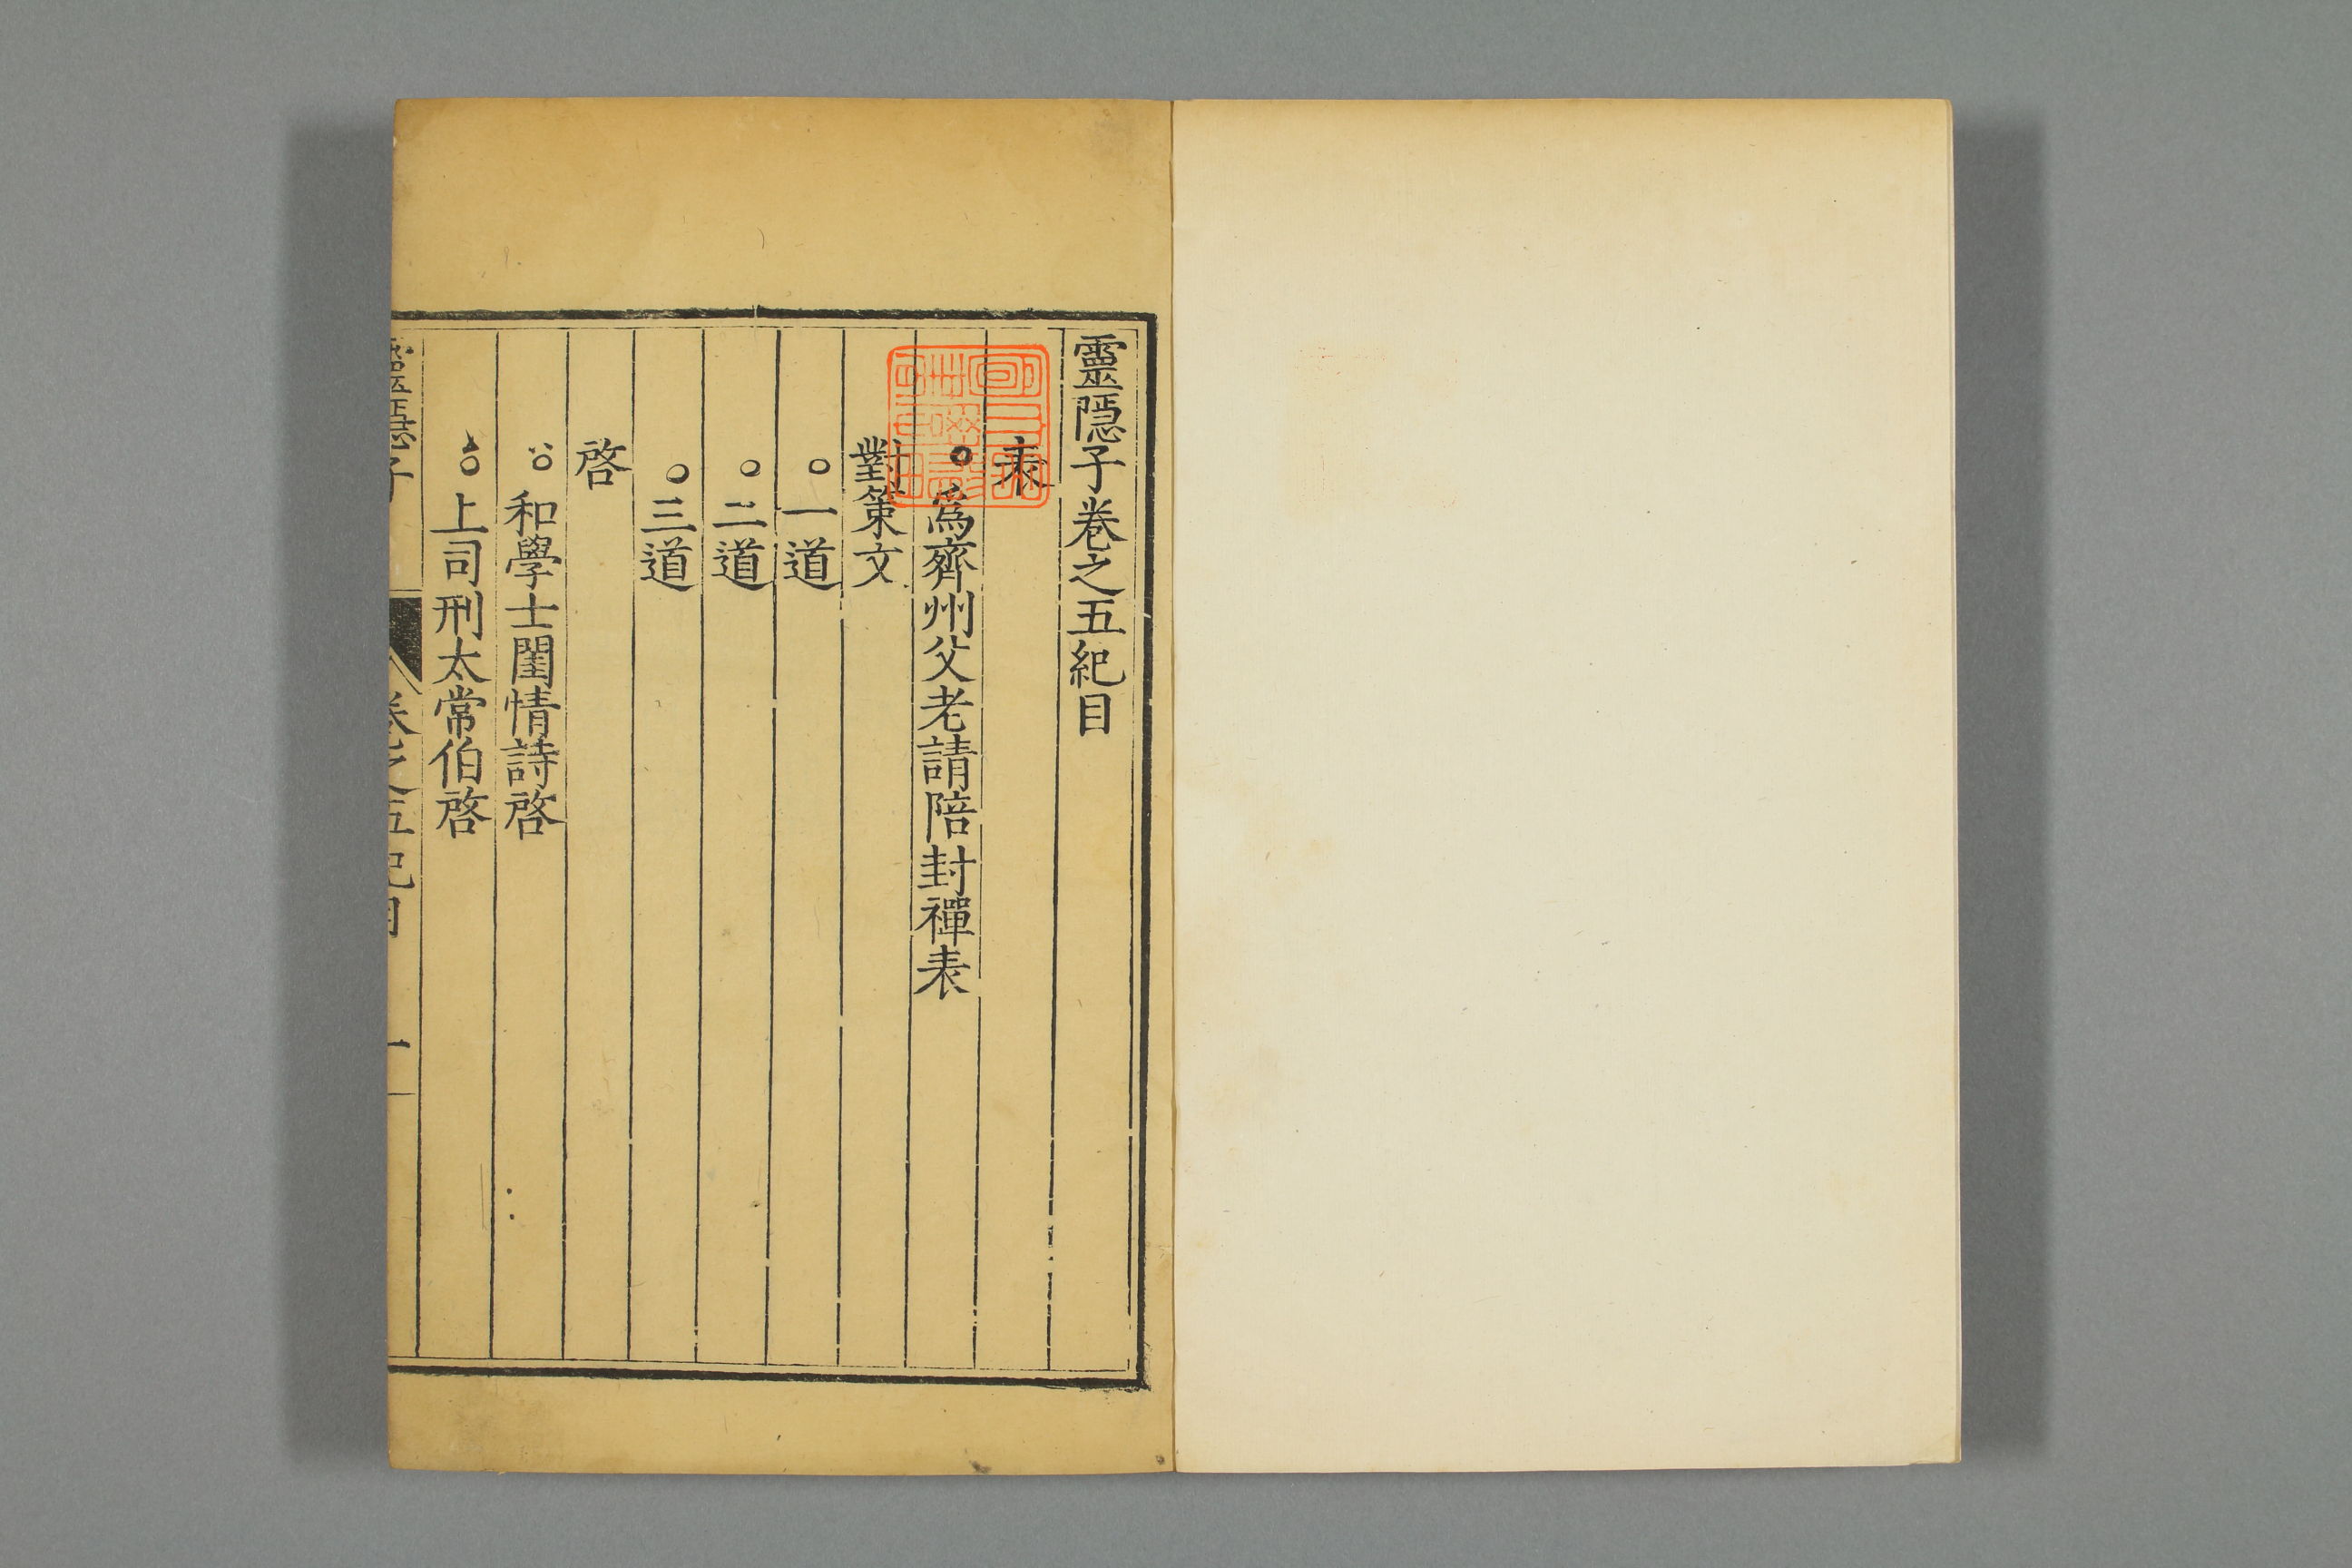 靈隱子卷之五紀目
表
○為齊州父老請陪封禪表
對策文
○一道
○二道
○三道
啓
○和學士閨情詩啓
○上司刑太常伯啓
靈隱子 卷之五紀目 一